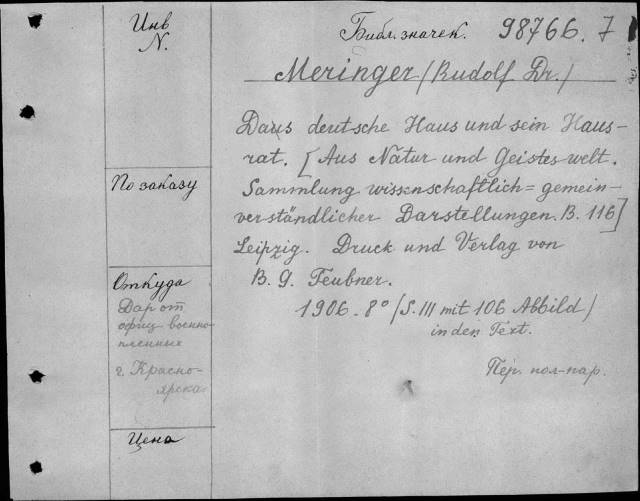 Инв
N.
Библ. значек. 98766. J
Meringer (Rudolf Dr.)
Daus deutsche Haus und sein Haus-
rat. [Aus Natur und Geisteswelt.
Sammlung wissenschaftlich=gemein-
verständlicher Darstellungen. B. 116]
Leipzig. Druck und Verlag von
B. G. Teubner.
1906. 8° (S. III mit 106 Abbild)
in den Text.
Пер. пол-пар.
По заказу
Откуда
Дар от
офиц. военно-
пленных
г. Красно-
ярска.
Цена